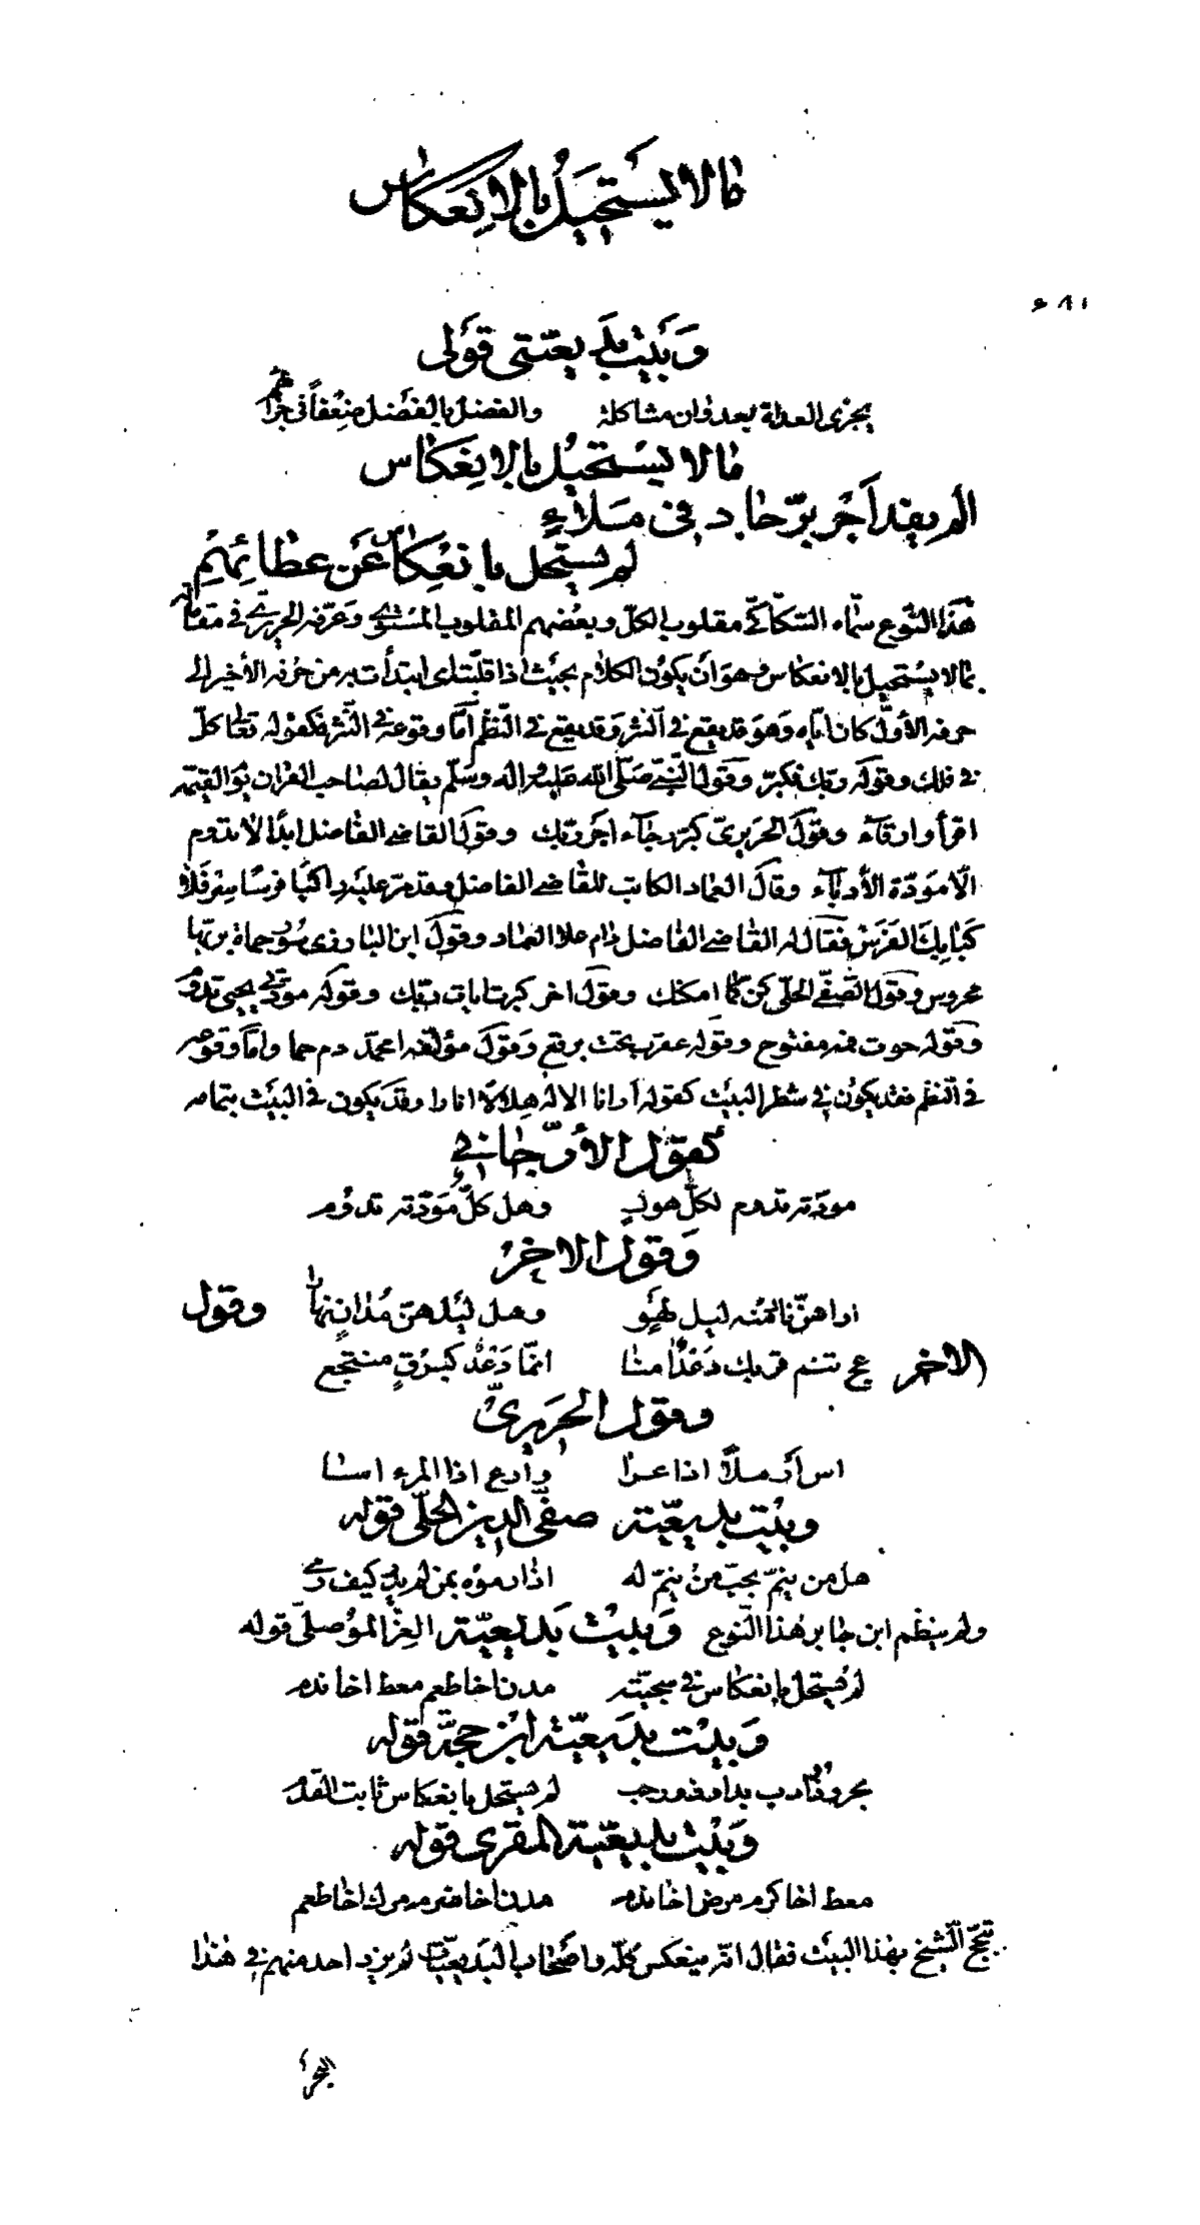 ما لا يستحيل بالانعكاس
وبيت بديعيتي قولي
يجزى العداة بعدوان مشاكلة والفضل بالفضل ضعفا في جزائهم
ما لا يستحيل بالانعكاس
الم يفد اجر بر حاب دفى ملاء
لم يستحل بانعكاس عن عطائهم
هذا النوع سماه السكاكي مقلوب الكل وبعضهم المقلوب المستوى وعرفه الحريري في مقاماته
بما لا يستحيل بالانعكاس وهو أن يكون الكلام بحيث اذا قلبته اى ابتدأت به من حرفه الأخير الى
حرفه الأول كان اياه وهو قد يقع في النثر وقد يقع في النظم أما وقوعه في النثر فكقوله تعالى كل
في فلك وقوله ربك فكبر وقول النبي صلى الله عليه واله وسلم يقال لصاحب القران يوم القيمة
اقرأ وارقاء وقول الحريري كبر رجاء اجر ربك وقول القاضي الفاضل ابدا لا تدوم
الا مودة الأدباء وقال العماد الكاتب للقاضي الفاضل وقد مر عليه راكبا فرسا سر فلا
كبا بك الفرس فقال له القاضي الفاضل دام علا العماد وقول ابن البارزى سور حماة بربها
محروس وقول الصفي الحلي كن كما امكنك وقول اخر كبرت ايات ربك وقوله مودتي يحيى تدوم
وقوله حوت فمه مفتوح وقوله عقرب تحت برقع وقول مؤلفه احمد دم حما واما وقوعه
في النظم فقد يكون في شطر البيت كقوله أرانا الاله هلالا انارا وقد يكون في البيت بتمامه
كقول الأرجاني
مودته تدوم لكل هول وهل كل مودته تدوم
وقول الاخر
اراهن نادمنه ليل لهو وهل ليلهن مدان نهارا وقول
الاخر عج تنم قربك دعدا منا انما دعد كبرق منتجع
وقول الحريري
اس أرملا اذا عرا وارع اذا المرء اسا
وبيت بديعية صفي الدين الحلي قوله
هل من ينم بحب من ينم له اذا رموه بمن لم يدر كيف رمي
ولم ينظم ابن جابر هذا النوع وبيت بديعية العز الموصلي قوله
لم يستحل بانعكاس في سجيته مدن اخا طعم معط اخا ندم
وبيت بديعية ابن حجة قوله
بحر وذو ادب بدا وذو رحب لم يستحل بانعكاس ثابت القدم
وبيت بديعية المقرى قوله
معط اخا كرم مرض اخا ندم مدن اخا ضرم مرك اخا طعم
تبجح الشيخ بهذا البيت فقال انه ينعكس كله واصحاب البديعيات لم يزد احد منهم في هذا